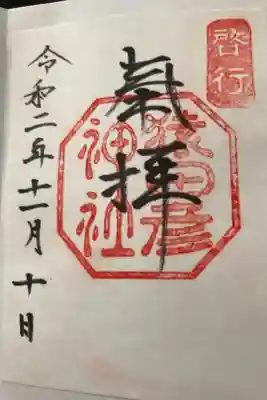 啓行
奉拝
猿田彦
神社
令和二年十一月十日